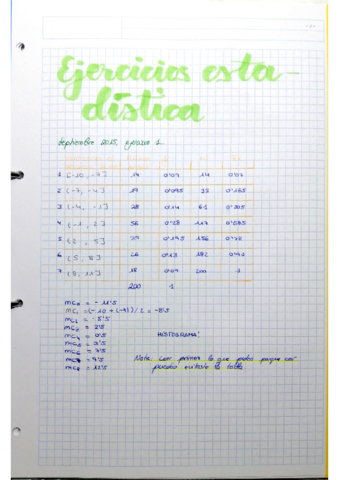 Ejercicios esta-
dística
septiembre 2015, ejercicio 1.
1 (-10, -7] 14 0'07 14 0'07
2 (-7, -4] 19 0'095 33 0'165
3 (-4, -1] 28 0'14 61 0'305
4 (-1, 2] 56 0'28 117 0'585
5 (2, 5] 39 0'195 156 0'78
6 (5, 8] 26 0'13 182 0'91
7 (8, 11] 18 0'09 200 1
200 1
mc₀ = -11'5
mc₁ = (-10 + (-7))/2 = -8'5
mc₂ = -5'5
mc₃ = 2'5
mc₄ = 0'5
mc₅ = 3'5
mc₆ = 6'5
mc₇ = 9'5
mc₈ = 12'5
HISTOGRAMA:
Nota: leer primero lo que piden porque así
puedes evitarte la tabla.